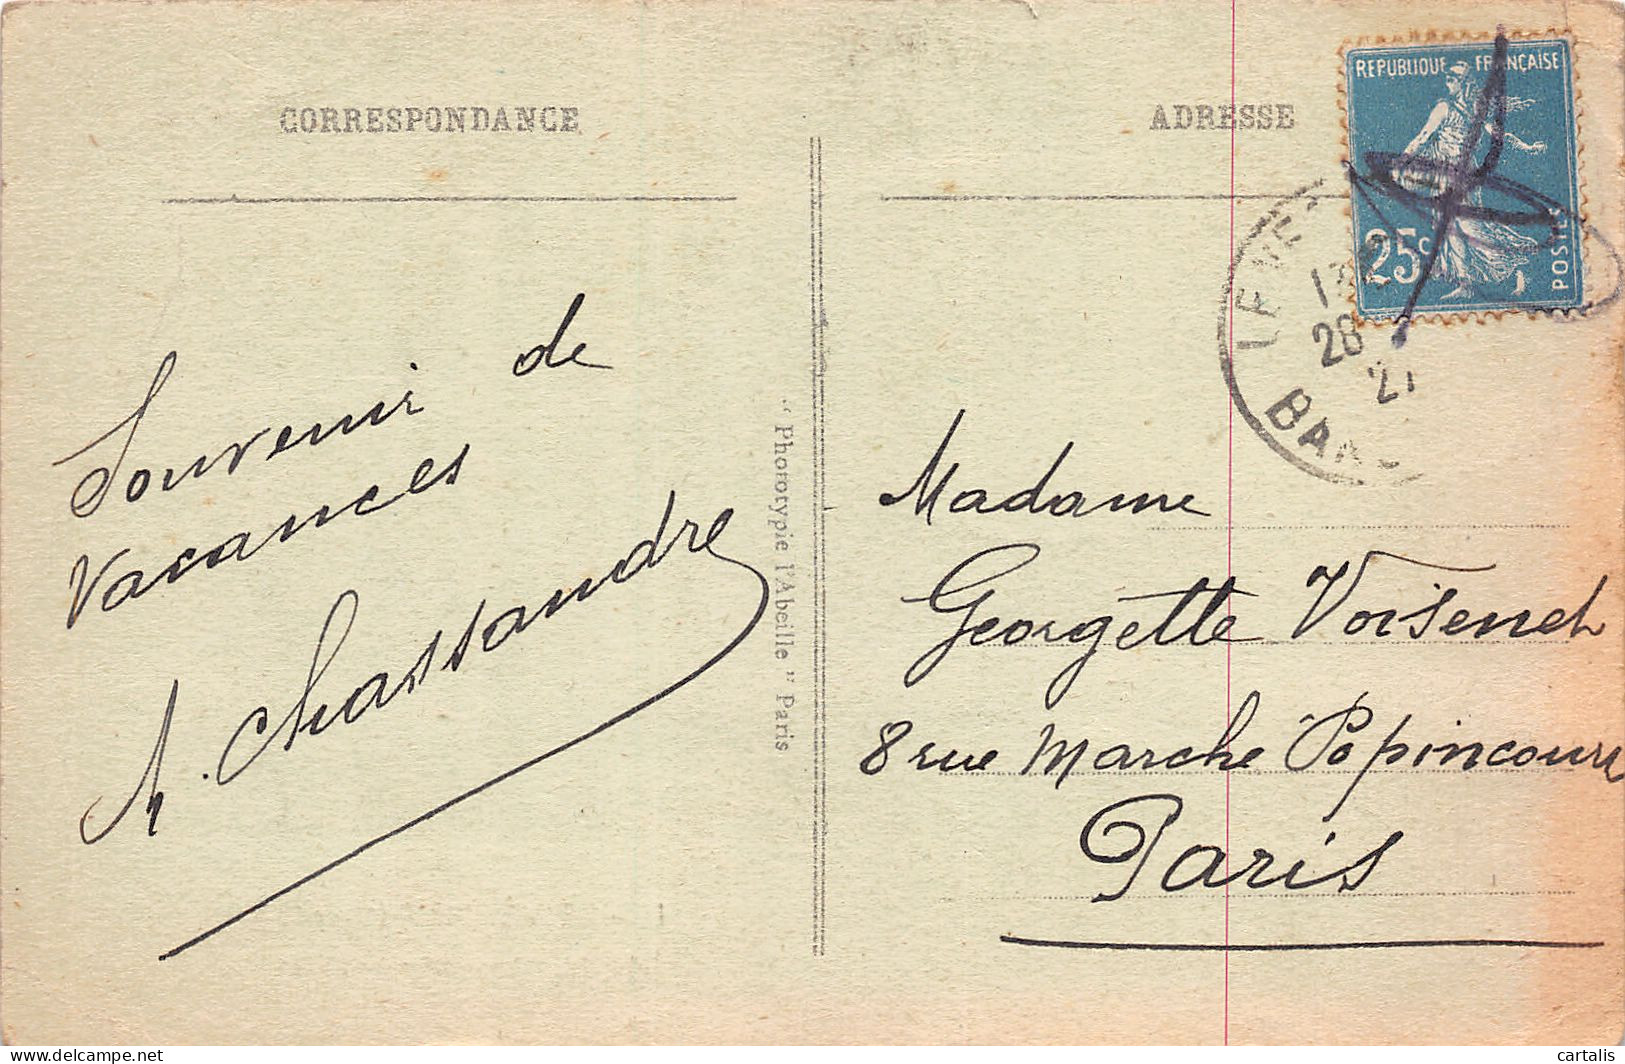 CORRESPONDANCE
Souvenir de
Vacances
A. Chassandre
" Phototypie l'Abeille " Paris
ADRESSE
REPUBLIQUE FRANÇAISE
25c
POSTES
28
Madame
Georgette Voisenet
8 rue Marche Popincourt
Paris
cartalis
delcampe.net